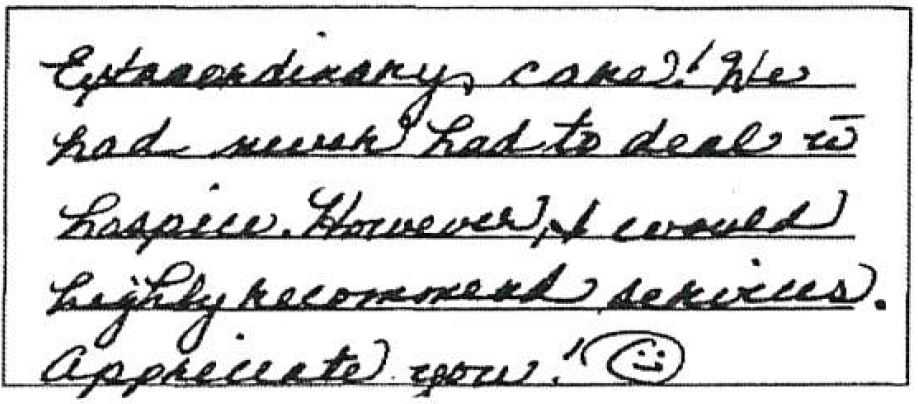 Extraordinary care! We
had never had to deal w̄
hospice. However, I would
highly recommend services.
Appreciate you! ☺